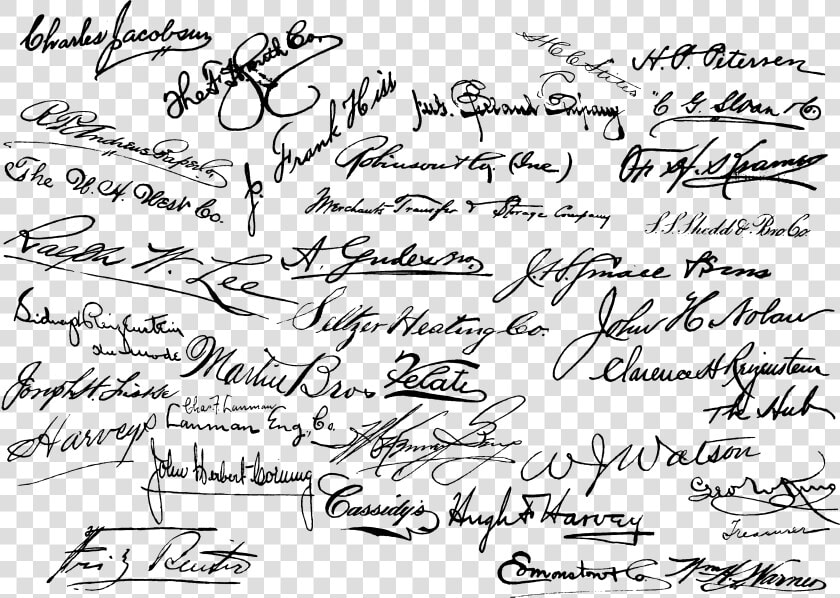 Charles Jacobsen
The F. H. Smith Co.
H. C. C. States
H. P. Petersen
J. Frank Hiss
Company
C G. Sloan & Co
R. P. Andrews Paper Co.
Robinson & Co. (Inc)
H. S. Kramer
The W. H. West Co.
Merchants Transfer & Storage Company
S. S. Shedd & Bro Co
Ralph W. Lee
A. Gude & Bro.
Grace & Sons
Sidney Reizenstein
Seltzer Heating Co.
John H. Nolan
Martin Bros
Velati
Clarence H Reizenstein
Joseph H.
The Hub
Chas. F. Lanman
Harveys
Lanman Eng. Co.
W J Watson
John Herbert Corning
Cassidy's
Hugh F. Harvey
Geo W King
Treasurer
Fritz Reuter
Edmonston & Co.
Wm H. Warner